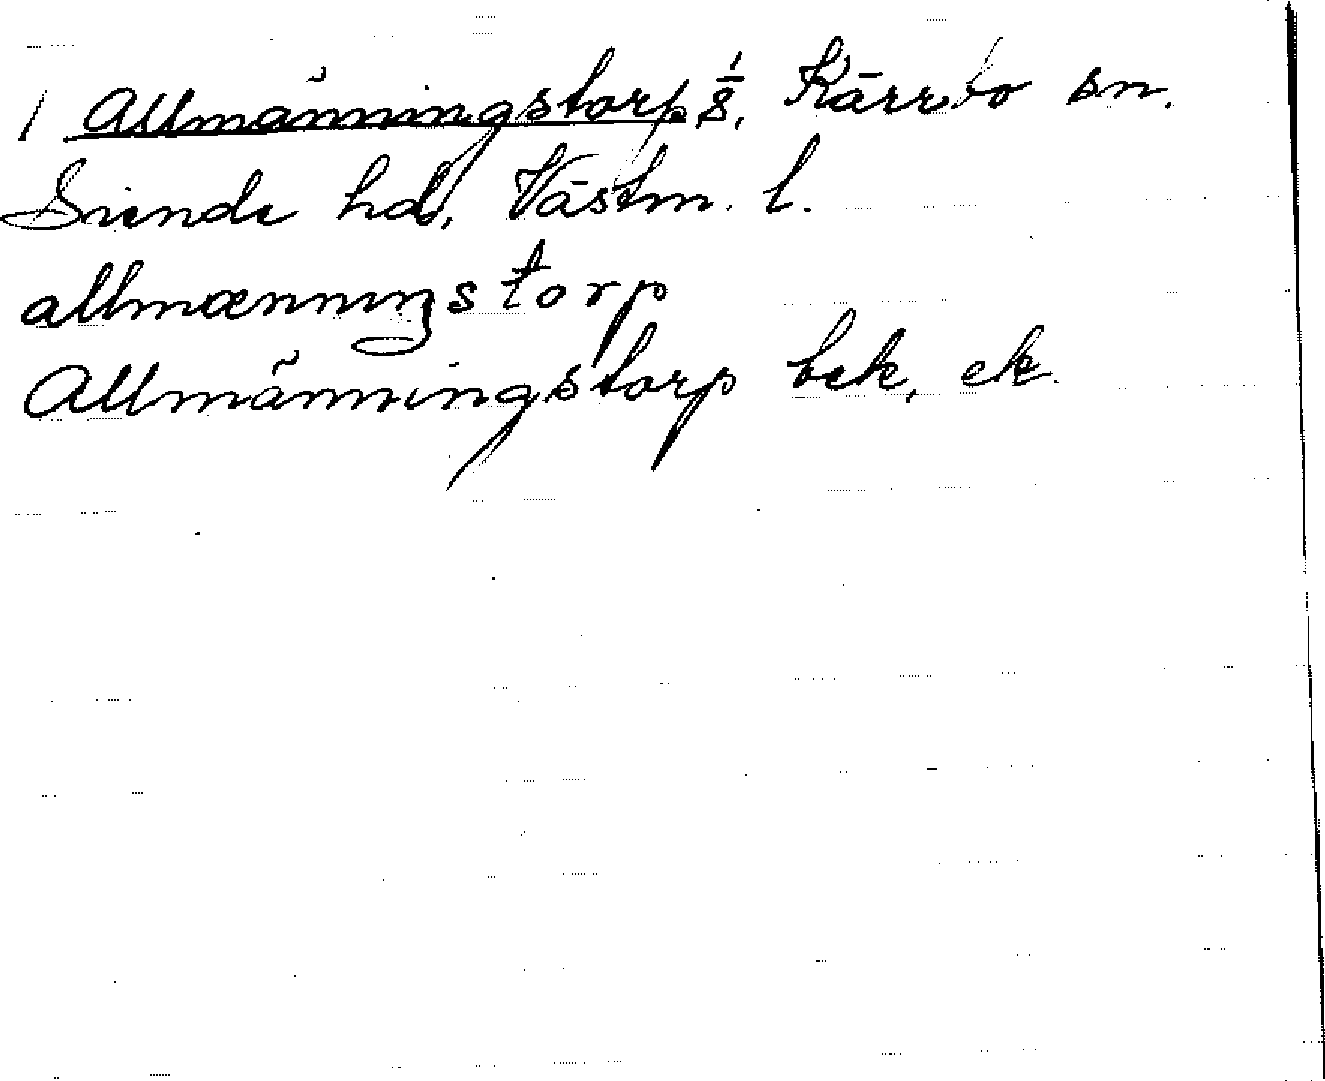 1 Allmänningstorp, 1/8, Kärrbo sn.
Siende hd, Västm. l.
allmænnıŋstorp
Allmänningstorp bek, ek.